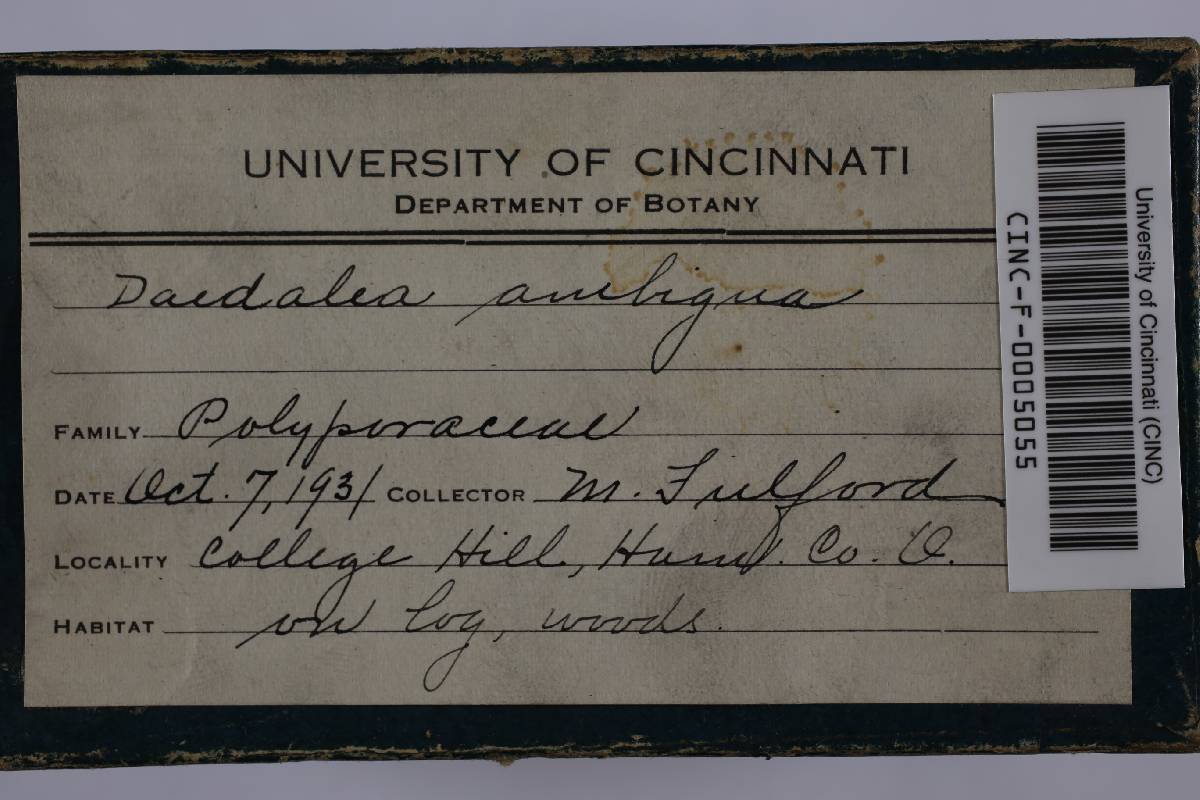 UNIVERSITY OF CINCINNATI
DEPARTMENT OF BOTANY
Daedalea ambigua
FAMILY Polyporaceae
DATE Oct. 7, 1931 COLLECTOR M. Fulford
LOCALITY College Hill, Ham. Co. O.
HABITAT on log, woods.
University of Cincinnati (CINC)
CINC-F-0005055